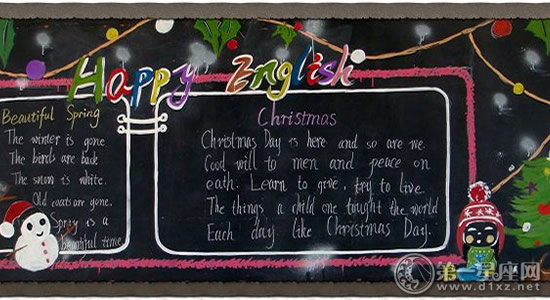 Happy English
Beautiful Spring
The winter is gone
The birds are back
The snow is white.
Old coats are gone.
Spring is a
beautiful time
Christmas
Christmas Day is here and so are we
Good will to men and peace on
eath. Learn to give, try to live
The things a child one tought the world
Each day like Christmas Day.
第一星座网
www.d1xz.net